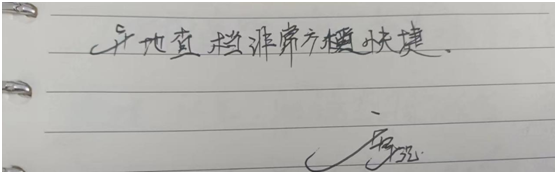 异地查档非常方便快捷.